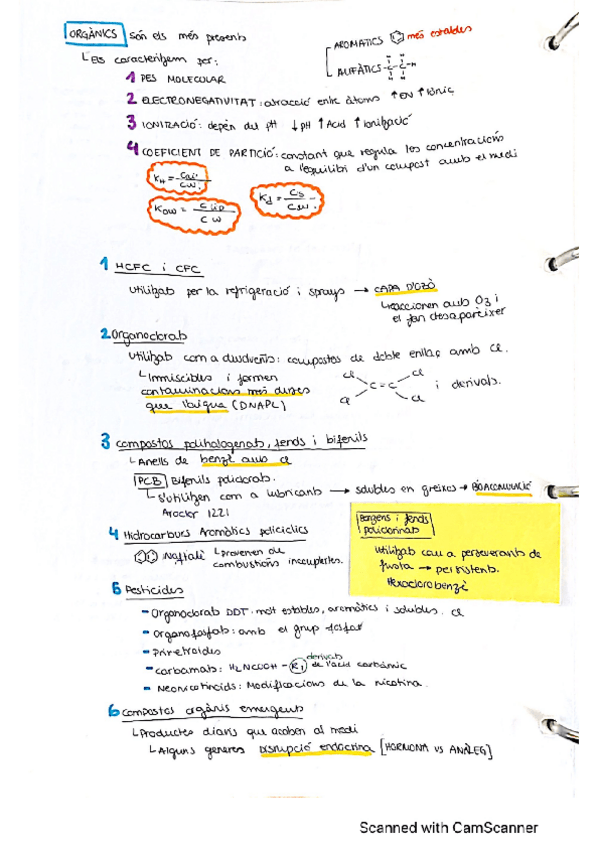 ORGÀNICS són els més presents
AROMÀTICS més estables
ALIFÀTICS -C-C-H
Els caracteritzem per:
1 PES MOLECULAR
2 ELECTRONEGATIVITAT: atracció entre àtoms ↑EN ↑Iònic
3 IONITZACIÓ: depèn del pH ↓pH ↑Àcid ↑Ionització
4 COEFICIENT DE PARTICIÓ: constant que regula les concentracions
a l'equilibri d'un compost amb el medi
KH = Cair / Cw
Kd = Cs / Cw
Kow = C lip / C w
1 HCFC i CFC
Utilitzats per la refrigeració i sprays → CAPA D'OZÓ
reaccionen amb O3 i
el fan desaparèixer
2 Organoclorats
Utilitzats com a dissolvents: compostos de doble enllaç amb Cl.
Immiscibles i formen
contaminacions més denses
que l'aigua (DNAPL)
Cl Cl C=C Cl Cl i derivats.
3 Compostos polihalogenats, fenols i bifenils
Anells de benzè amb Cl
PCB Bifenils policlorats.
S'utilitzen com a lubricants → solubles en greixos → BIOACUMULACIÓ
Aroclor 1221
Benzens i fenols
policlorinats
Utilitzats com a perseverants de
fusta → persistents.
Hexaclorobenzè
4 Hidrocarburs Aromàtics policíclics
Naftalè provenen de
combustions incompletes.
5 Pesticides
- Organoclorats DDT: molt estables, aromàtics i solubles. Cl
- Organofosfats: amb el grup fosfat
- Piretroides
- carbamats: H2NCOOH - R1 derivats de l'àcid carbàmic
- Neonicotinoids: Modificacions de la nicotina.
6 Compostos orgànics emergents
Productes diaris que acaben al medi
Alguns generen disrupció endocrina [HORMONA VS ANÀLEG]
Scanned with CamScanner